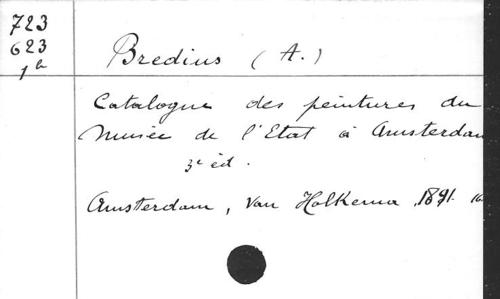 723
623
1b
Bredius (A.)
Catalogue des peintures du
Musée de l'Etat à Amsterdam
3e éd.
Amsterdam, Van Holkema, 1891.